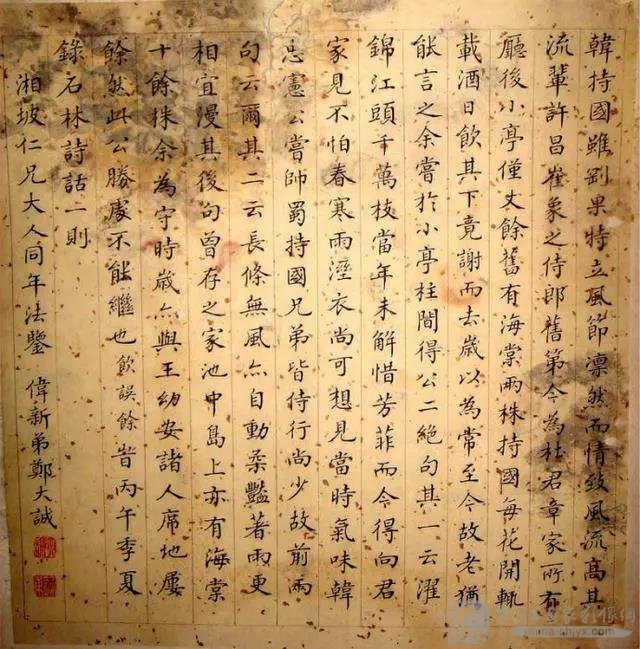 韓持國雖剛果特立風節凛然而情致風流高其
流輩許昌崔象之侍郎舊第今為杜君章家所有
廳後小亭僅丈餘舊有海棠兩株持國每花開輒
載酒日飲其下竟謝而去歲以為常至今故老猶
能言之余嘗於小亭柱間得公二絕句其一云濯
錦江頭千萬枝當年未解惜芳菲而今得向君
家見不怕春寒雨溼衣尚可想見當時氣味韓
忠憲公嘗帥蜀持國兄弟皆侍行尚少故前兩
句云爾其二云長條無風亦自動柔豔著雨更
相宜漫其後句曾存之家池中島上亦有海棠
十餘株余為守時歲亦與王幼安諸人席地屢
餘然此公勝處不能繼也飲誤餘 旹丙午季夏
錄石林詩話一則
湘坡仁兄大人同年法鑒 偉新弟鄭大誠
china-shjyx.com